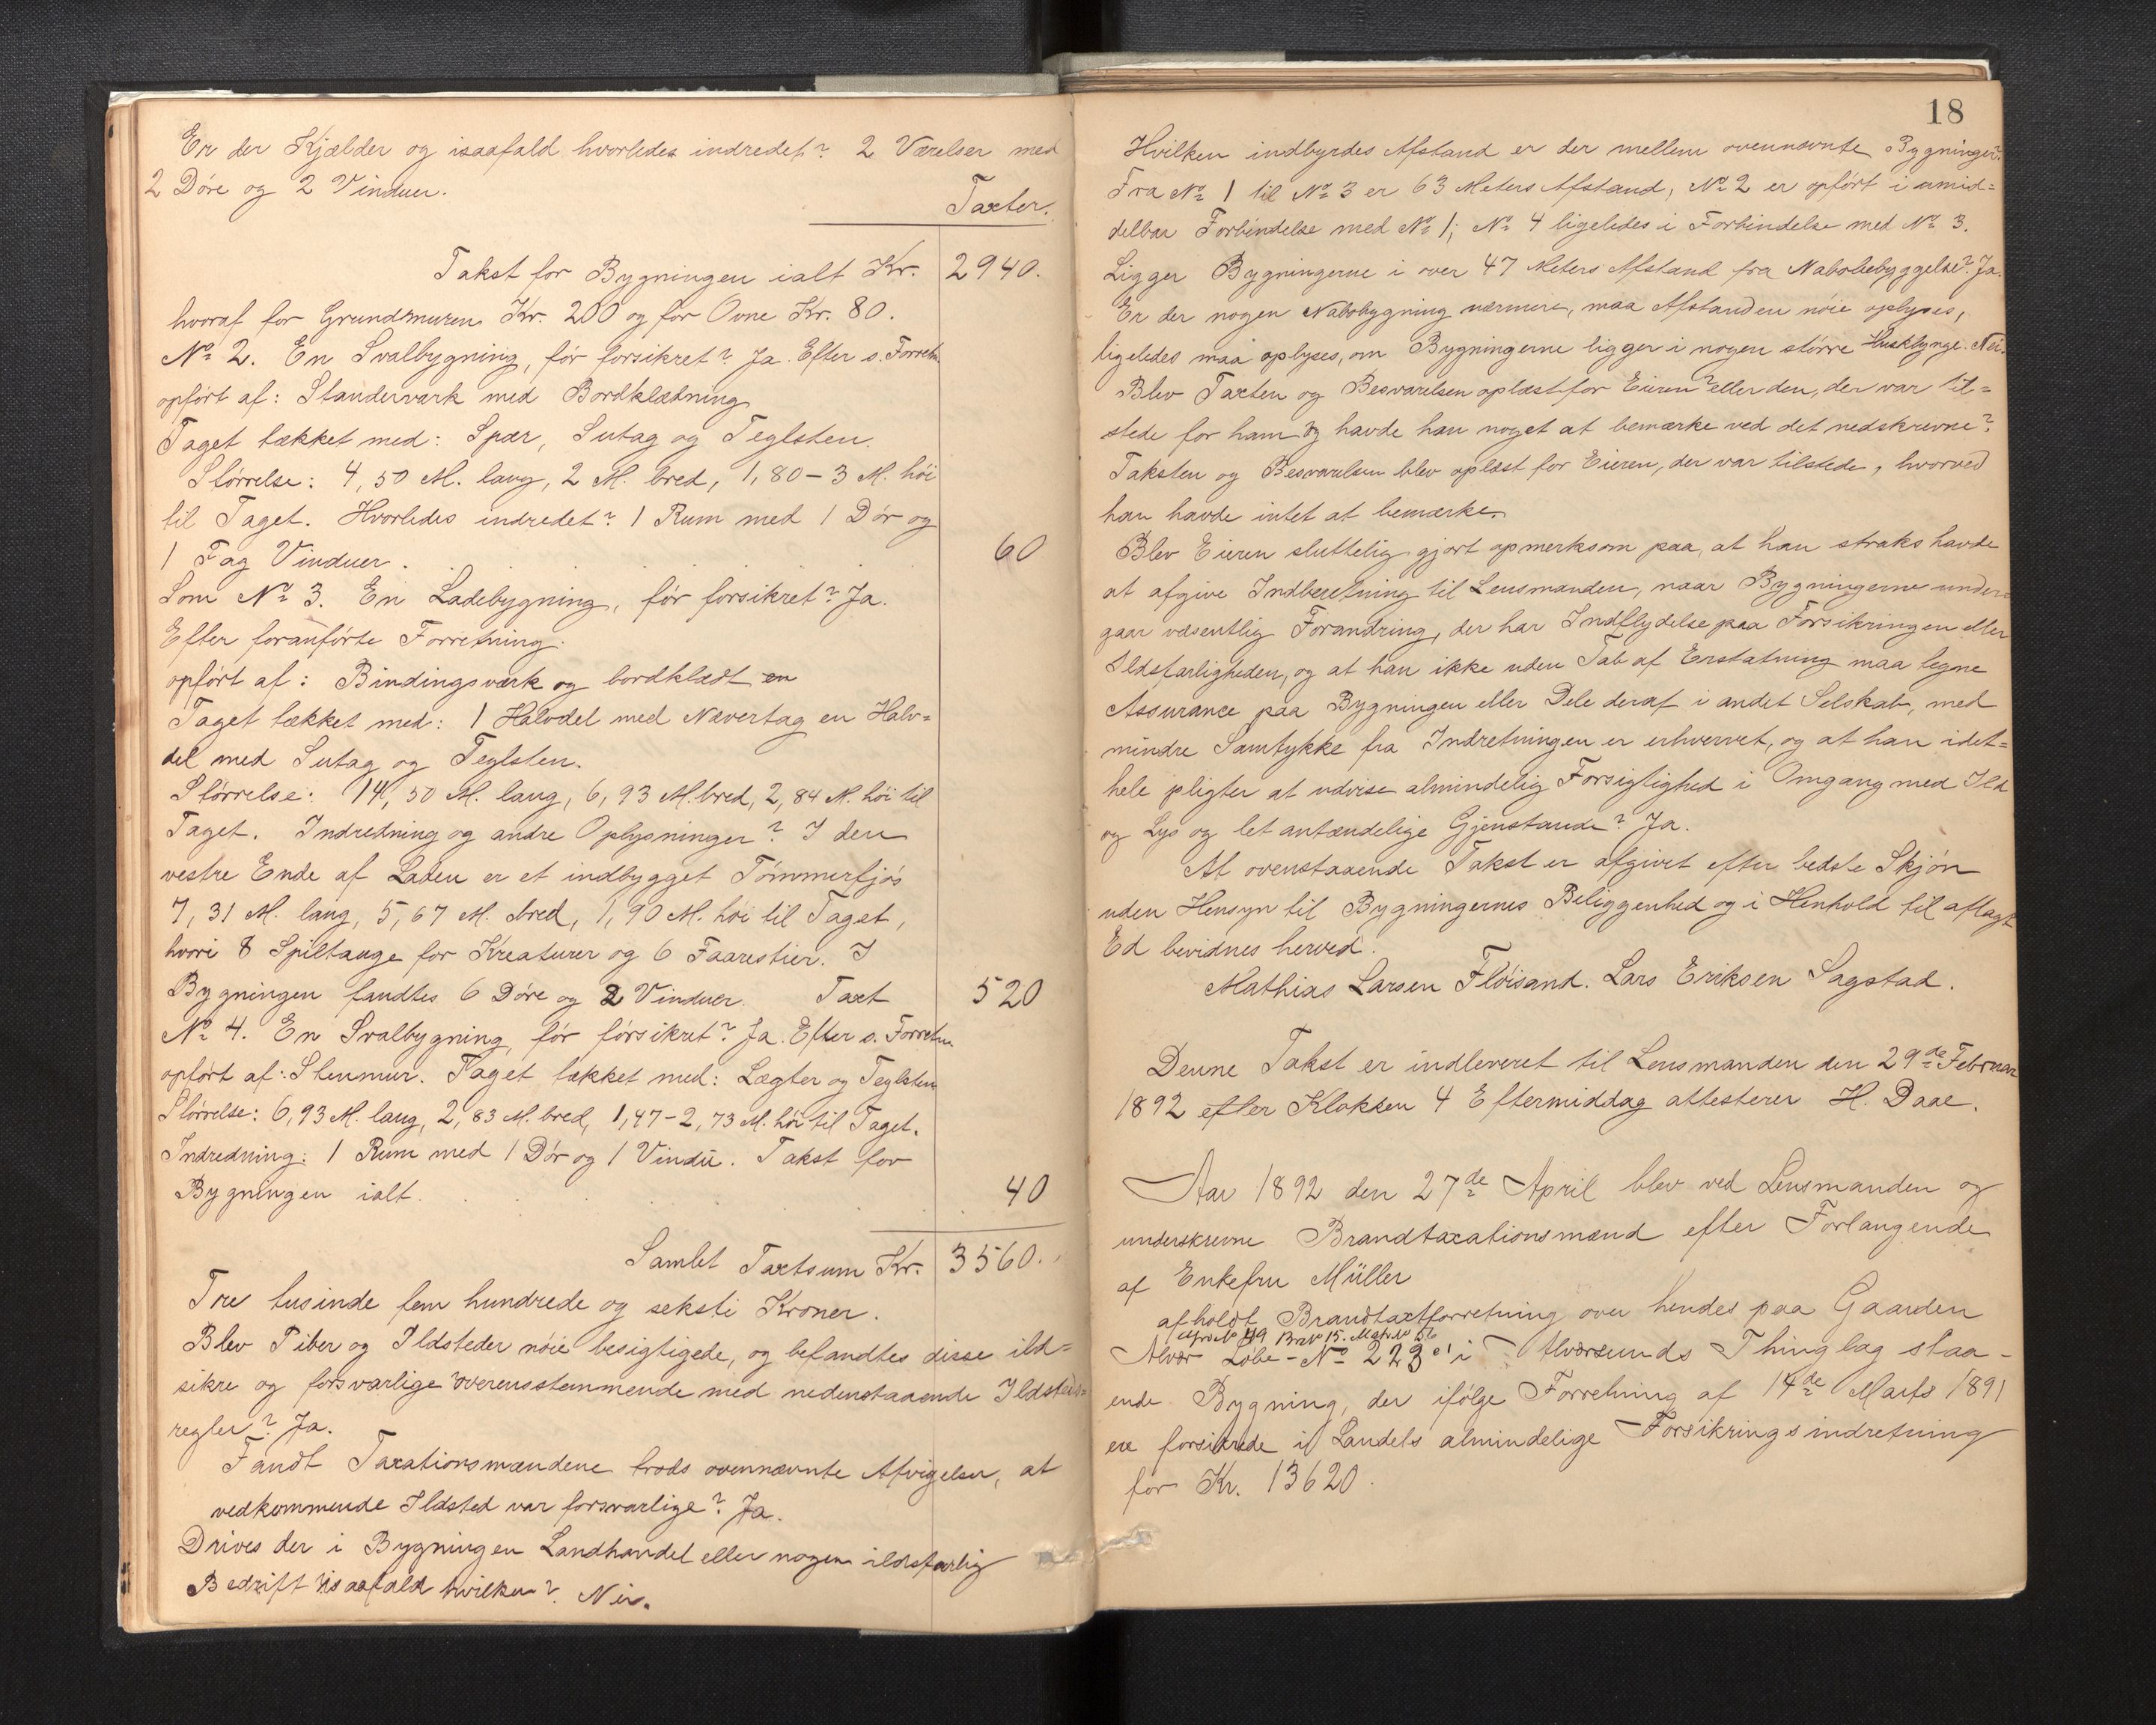 Er der Kjælder og isaafald hvorledes indredet? 2 Værelser med
2 Döre og 2 Vinduer.
Taxter.
Takst for Bygningen ialt Kr. 2940.
hvoraf for Grundmuren Kr. 200 og for Ovne Kr. 80.
No 2. En Svalbygning, för forsikret? Ja. Efter s. Forretn
opfört af: Standerværk med Bordklædning
Taget tækket med: Spær, Sutag og Teglsten.
Störrelse: 4,50 M. lang, 2 M. bred, 1,80-3 M. höi
til Taget. Hvorledes indredet? 1 Rum med 1 Dör og
1 Fag Vinduer . . . . 60
Som No 3. En Ladebygning, för forsikret? Ja.
Efter foranförte Forretning.
opfört af: Bindingsværk og bordklædt en
Taget tækket med: 1 Halvdel med Nævertag en Halv=
del med Sutag og Teglsten.
Störrelse: 14,50 M. lang, 6,93 M. bred, 2,84 M. höi til
Taget. Indredning og andre Oplysninger? I den
vestre Ende af Laden er et indbygget Tömmerfjös
7,31 M. lang, 5,67 M. bred, 1,90 M. höi til Taget,
hvori 8 Spiltauge for Kreaturer og 6 Faarestier. I
Bygningen fandtes 6 Döre og 2 Vinduer. Taxt 520
No 4. En Svalbygning, för försikret? Ja. Efter s. Forretn.
opfört af: Stenmur. Taget tækket med: Lægter og Teglsten
Störrelse: 6,93 M. lang, 2,83 M. bred, 1,47-2,73 M. höi til Taget.
Indredning: 1 Rum med 1 Dör og 1 Vindu. Takst for
Bygningen ialt . . . . 40
Samlet Taxtsum Kr. 3560.
Tre tusinde fem hundrede og seksti Kroner.
Blev Piber og Ildsteder nöie besigtigede, og befandtes disse ild=
sikre og forsvarlige overensstemmende med nedenstaaende Ildsteds=
regler? Ja.
Fandt Taxationsmændene trods ovennævnte Afvigelser, at
vedkommende Ildsted var forsvarlige? Ja.
Drives der i Bygningen Landhandel eller nogen ildsfarlig
Bedrift isaafald hvilken? Nei.
18
Hvilken indbyrdes Afstand er der mellem ovennævnte Bygninger?
Fra No 1 til No 3 er 63 Meters Afstand, No 2 er opfört i umid=
delbar Forbindelse med No 1; No 4 ligeledes i Forbindelse med No 3.
Ligger Bygningerne i over 47 Meters Afstand fra Nabobebyggelse? Ja.
Er der nogen Nabobygning nærmere, maa Afstanden nöie oplyses,
ligeledes maa oplyses, om Bygningerne ligger i nogen större Husklynge. Nei.
Blev Taxten og Besvarelsen oplæst for Eieren eller den, der var til=
stede for ham og havde han noget at bemærke ved det nedskrevne?
Taksten og Besvarelsen blev oplæst for Eieren, der var tilstede, hvorved
han havde intet at bemærke.
Blev Eieren sluttelig gjort opmerksom paa, at han straks havde
at afgive Indberetning til Lensmanden, naar Bygningerne under=
gaar væsentlig Forandring, der har Indflydelse paa Forsikringen eller
Ildsfarligheden, og at han ikke uden Tab af Erstatning maa tegne
Assurance paa Bygningen eller Dele deraf i andet Selskab, med
mindre Samtykke fra Indretningen er erhvervet, og at han idet=
hele pligter at udvise almindelig Forsigtighed i Omgang med Ild
og Lys og let antændelige Gjenstande? Ja.
At ovenstaaende Takst er afgivet efter bedste Skjön
uden Hensyn til Bygningernes Beliggenhed og i Henhold til aflagt
Ed bevidnes herved.
Mathias Larsen Flöisand. Lars Eriksen Sagstad.
Denne Takst er indleveret til Lensmanden den 29de Februar
1892 efter Klokken 4 Eftermiddag attesterer H. Daae.
Aar 1892 den 27de April blev ved Lensmanden og
underskrevne Brandtaxationsmænd efter Forlangende
af Enkefru Müller
afholdt Brandtaxtforretning over hendes paa Gaarden
No 49 Br No 15. Matr No 56
Alvær Löbe-No 223 i Alværsunds Thinglag staa-
ende Bygning, der ifölge Forretning af 14de Marts 1891
ere forsikrede i Landets almindelige Forsikringsindretning
for Kr. 13620.